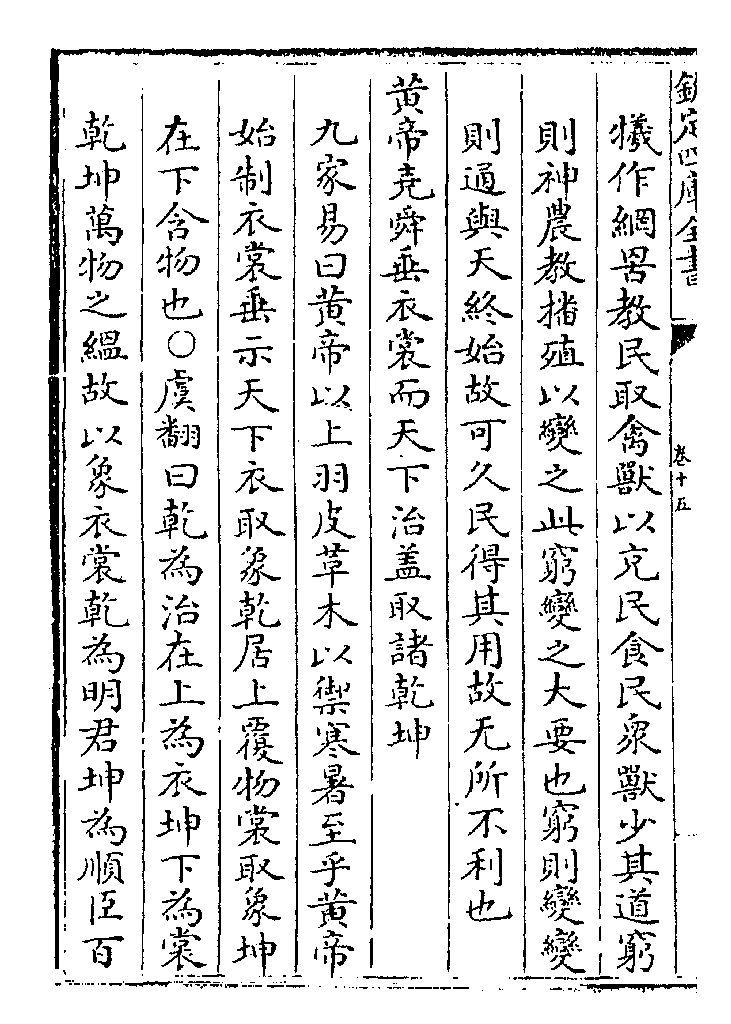 欽定四庫全書
卷十五
犧作網罟教民取禽獸以充民食民衆獸少其道窮
則神農教播殖以變之此窮變之大要也窮則變變
則通與天終始故可久民得其用故无所不利也
黄帝堯舜垂衣裳而天下治盖取諸乾坤
九家易曰黄帝以上羽皮草木以禦寒暑至乎黄帝
始制衣裳垂示天下衣取象乾居上覆物裳取象坤
在下含物也○虞翻曰乾為治在上為衣坤下為裳
乾坤萬物之緼故以象衣裳乾為明君坤為順臣百